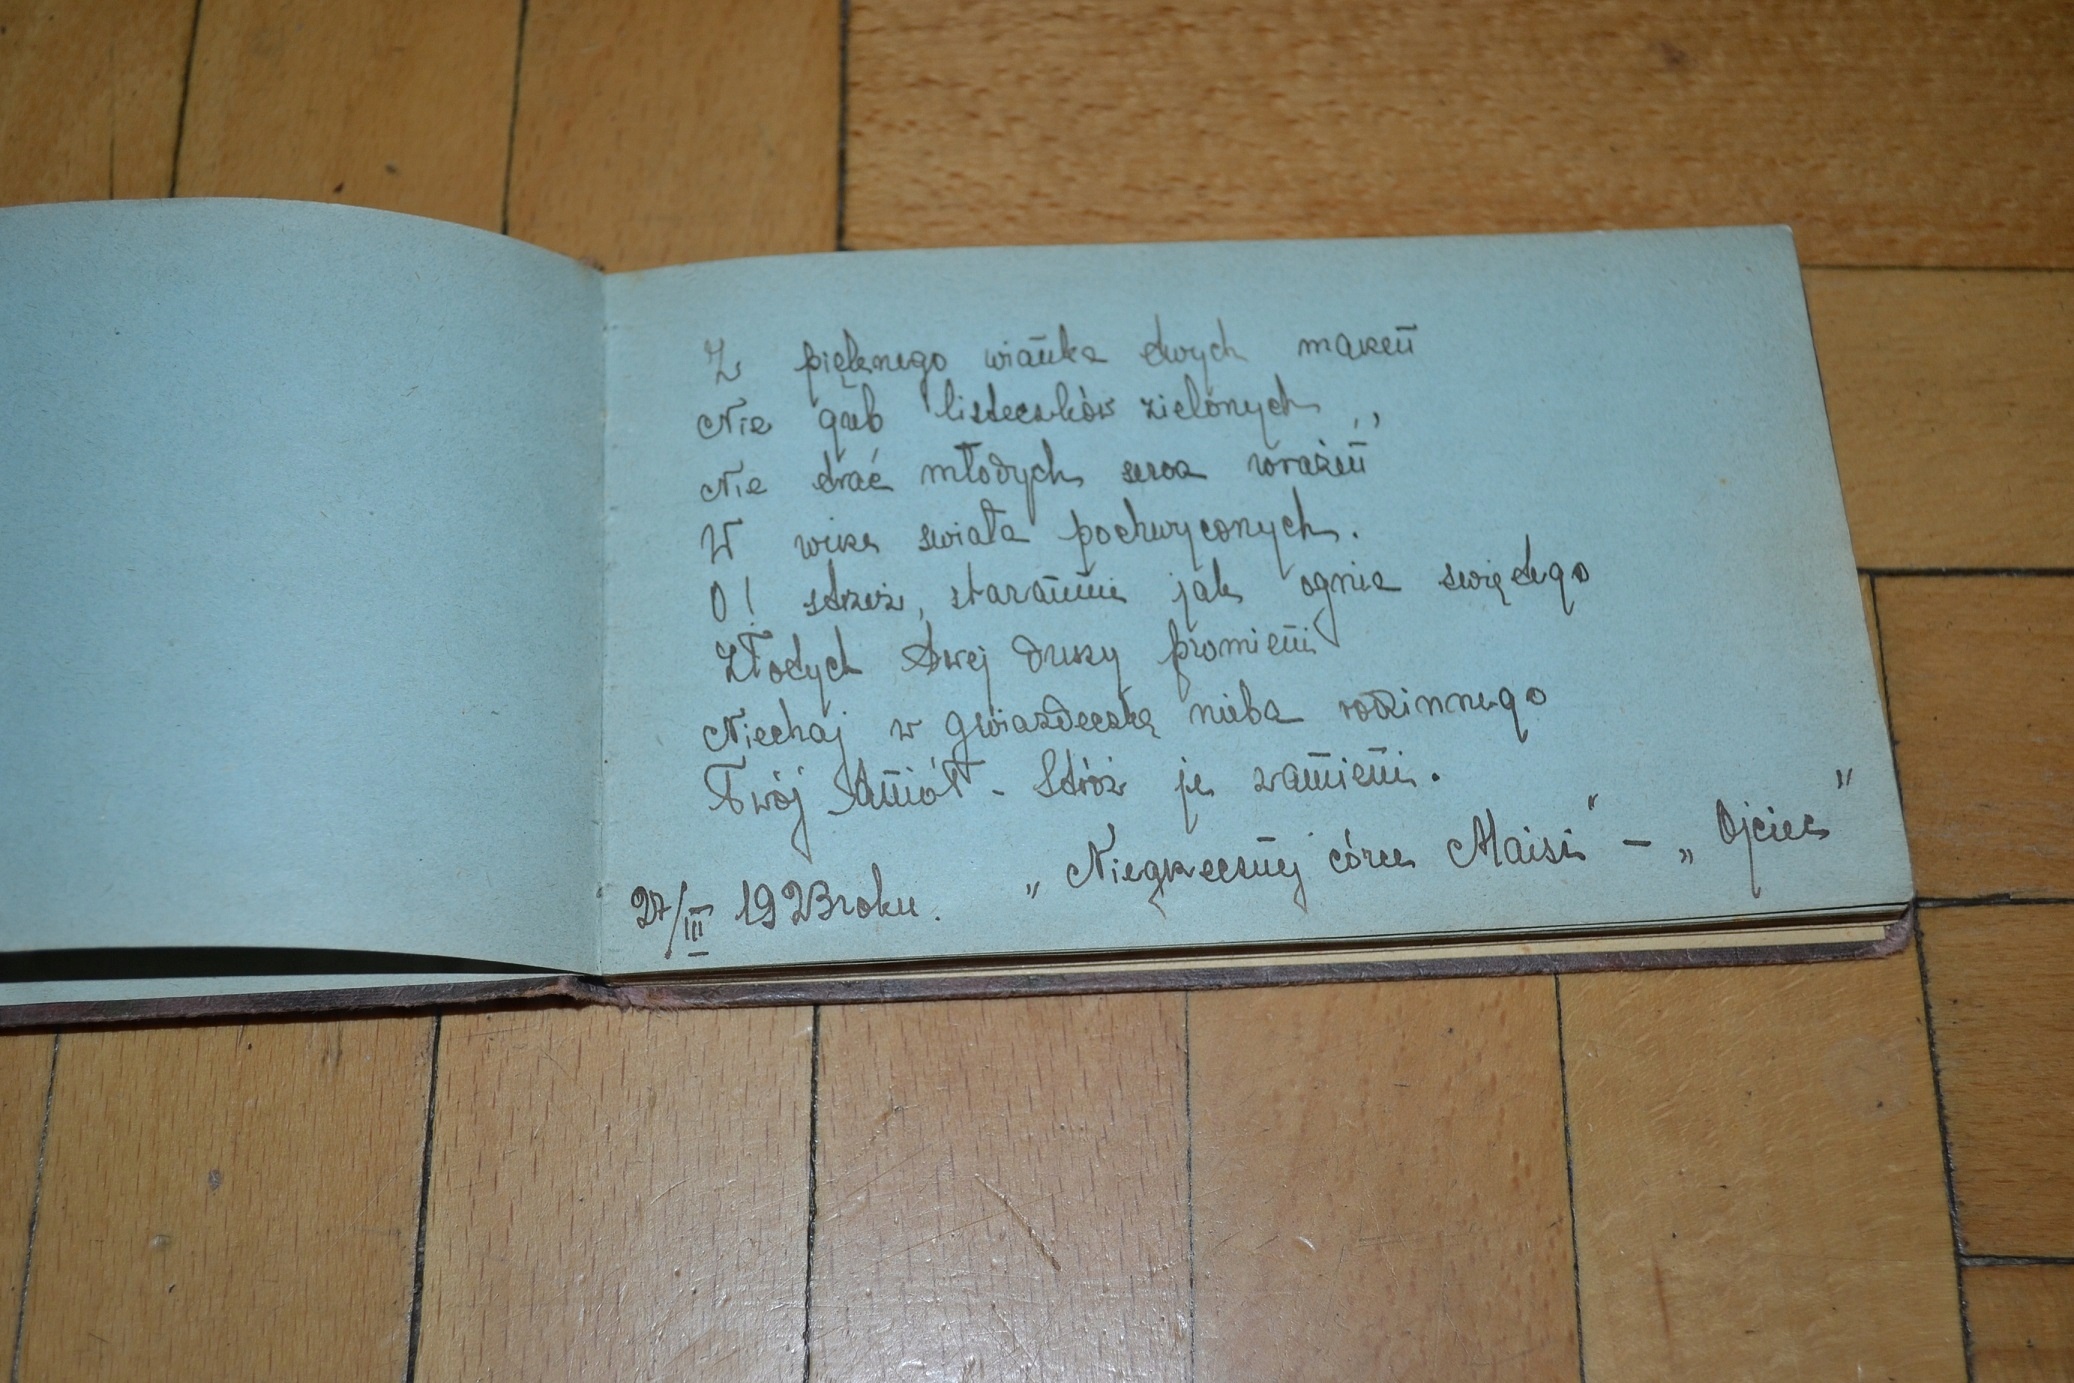 Z pięknego wianka twych marzeń
Nie gub listeczków zielonych,
Nie trać młodych serca wrażeń
W wirze świata pochwyconych.
O! strzeż, starannie jak ognia świętego
Złotych Twej duszy promieni
Niechaj w gwiazdeczkę nieba rodzinnego
Twój Anioł - Stróż je zamieni.
„Niegrzecznej córce Maisi" – „Ojciec"
27/III 1923 roku.